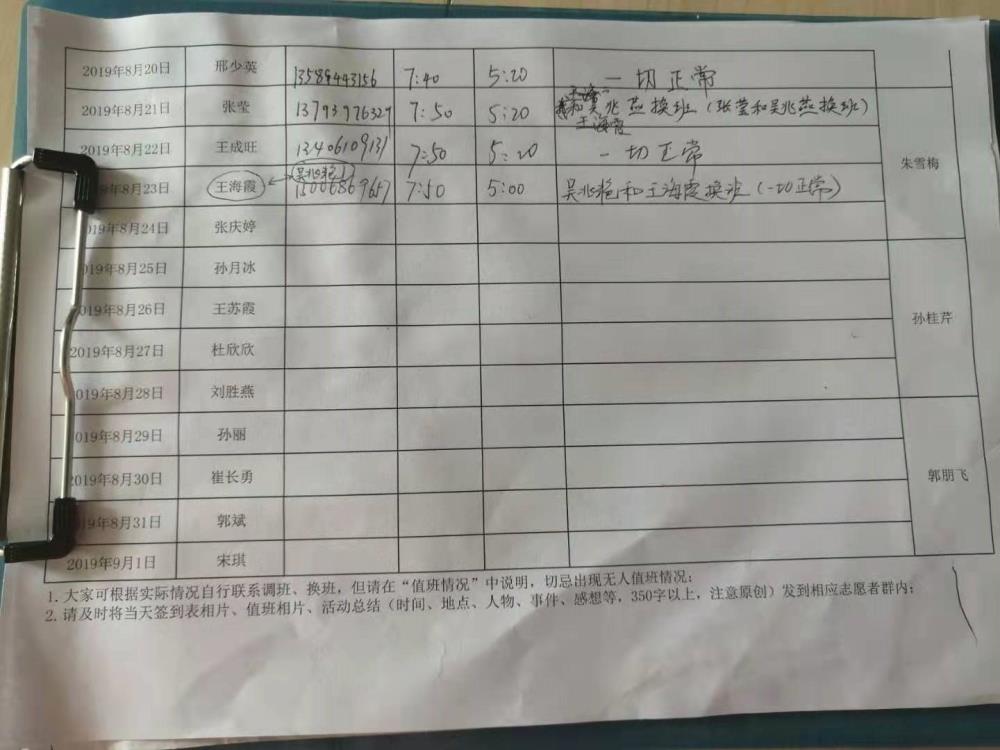 2019年8月20日 邢少英 13589443156 7:40 5:20 一切正常
2019年8月21日 张莹 13793976327 7:50 5:20 和吴兆燕换班（张莹和吴兆燕换班）
王海霞
2019年8月22日 王成旺 13406109131 7:50 5:20 一切正常 朱雪梅
吴兆艳
19年8月23日 王海霞 15006869657 7:50 5:00 吴兆艳和王海霞换班（一切正常）
19年8月24日 张庆婷
019年8月25日 孙月冰
019年8月26日 王苏霞 孙桂芹
2019年8月27日 杜欣欣
019年8月28日 刘胜燕
019年8月29日 孙丽
019年8月30日 崔长勇 郭朋飞
19年8月31日 郭斌
2019年9月1日 宋琪
1. 大家可根据实际情况自行联系调班、换班，但请在“值班情况”中说明，切忌出现无人值班情况；
2. 请及时将当天签到表相片、值班相片、活动总结（时间、地点、人物、事件、感想等，350字以上，注意原创）发到相应志愿者群内；